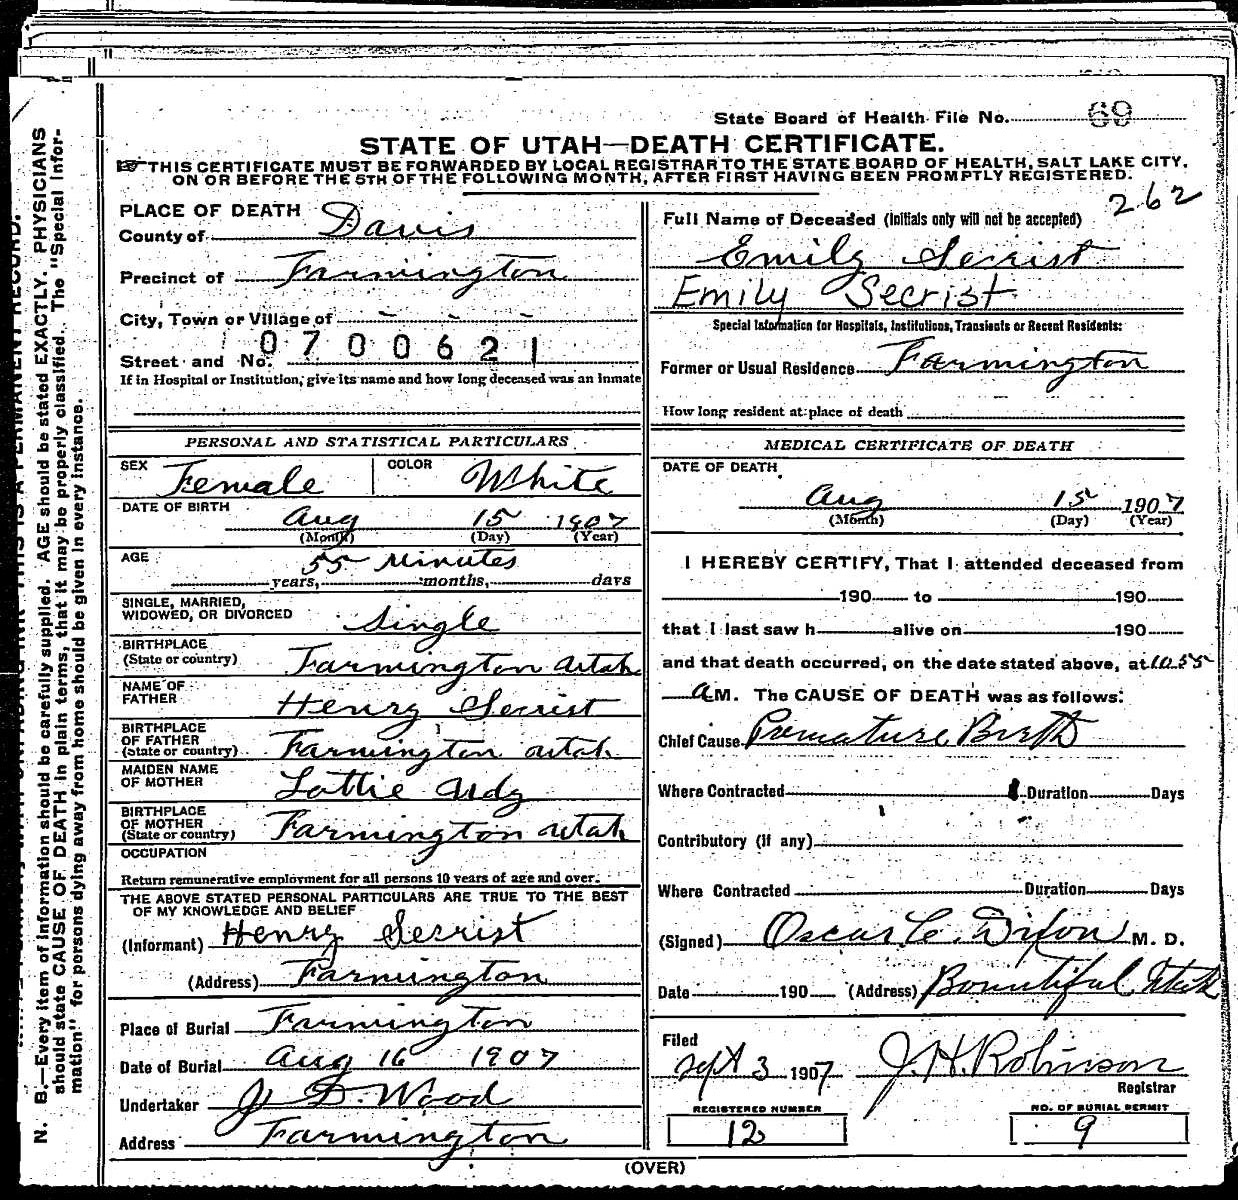 State Board of Health File No. 69
STATE OF UTAH—DEATH CERTIFICATE.
THIS CERTIFICATE MUST BE FORWARDED BY LOCAL REGISTRAR TO THE STATE BOARD OF HEALTH, SALT LAKE CITY,
ON OR BEFORE THE 5TH OF THE FOLLOWING MONTH, AFTER FIRST HAVING BEEN PROMPTLY REGISTERED.
262
PLACE OF DEATH
County of Davis
Precinct of Farmington
City, Town or Village of - - -
Street and No. 0700621
If in Hospital or Institution, give its name and how long deceased was an inmate
Full Name of Deceased (Initials only will not be accepted)
Emily Secrist
Emily Secrist
Special Information for Hospitals, Institutions, Transients or Recent Residents:
Former or Usual Residence Farmington
How long resident at place of death
PERSONAL AND STATISTICAL PARTICULARS
SEX Female COLOR White
DATE OF BIRTH Aug 15 1907
(Month) (Day) (Year)
AGE 55 Minutes
years, months, days
SINGLE, MARRIED,
WIDOWED, OR DIVORCED Single
BIRTHPLACE
(State or country) Farmington Utah
NAME OF
FATHER Henry Secrist
BIRTHPLACE
OF FATHER
(State or country) Farmington Utah
MAIDEN NAME
OF MOTHER Lottie Udy
BIRTHPLACE
OF MOTHER
(State or country) Farmington Utah
OCCUPATION
Return remunerative employment for all persons 10 years of age and over.
THE ABOVE STATED PERSONAL PARTICULARS ARE TRUE TO THE BEST
OF MY KNOWLEDGE AND BELIEF
(Informant) Henry Secrist
(Address) Farmington
Place of Burial Farmington
Date of Burial Aug 16 1907
Undertaker J D. Wood
Address Farmington
MEDICAL CERTIFICATE OF DEATH
DATE OF DEATH
Aug 15 1907
(Month) (Day) (Year)
I HEREBY CERTIFY, That I attended deceased from
190 to 190
that I last saw h alive on 190
and that death occurred, on the date stated above, at 10.55
a M. The CAUSE OF DEATH was as follows:
Chief Cause Premature Birth
Where Contracted Duration Days
Contributory (if any)
Where Contracted Duration Days
(Signed) Oscar C. Dixon M. D.
Date 190 (Address) Bountiful Utah
Filed
Sept 3 1907 J. H. Robinson
Registrar
REGISTERED NUMBER
12
NO. OF BURIAL PERMIT
9
(OVER)
THIS IS A PERMANENT RECORD.
N. B.—Every item of information should be carefully supplied. AGE should be stated EXACTLY. PHYSICIANS
should state CAUSE OF DEATH in plain terms, that it may be properly classified. The "Special Infor-
mation" for persons dying away from home should be given in every instance.